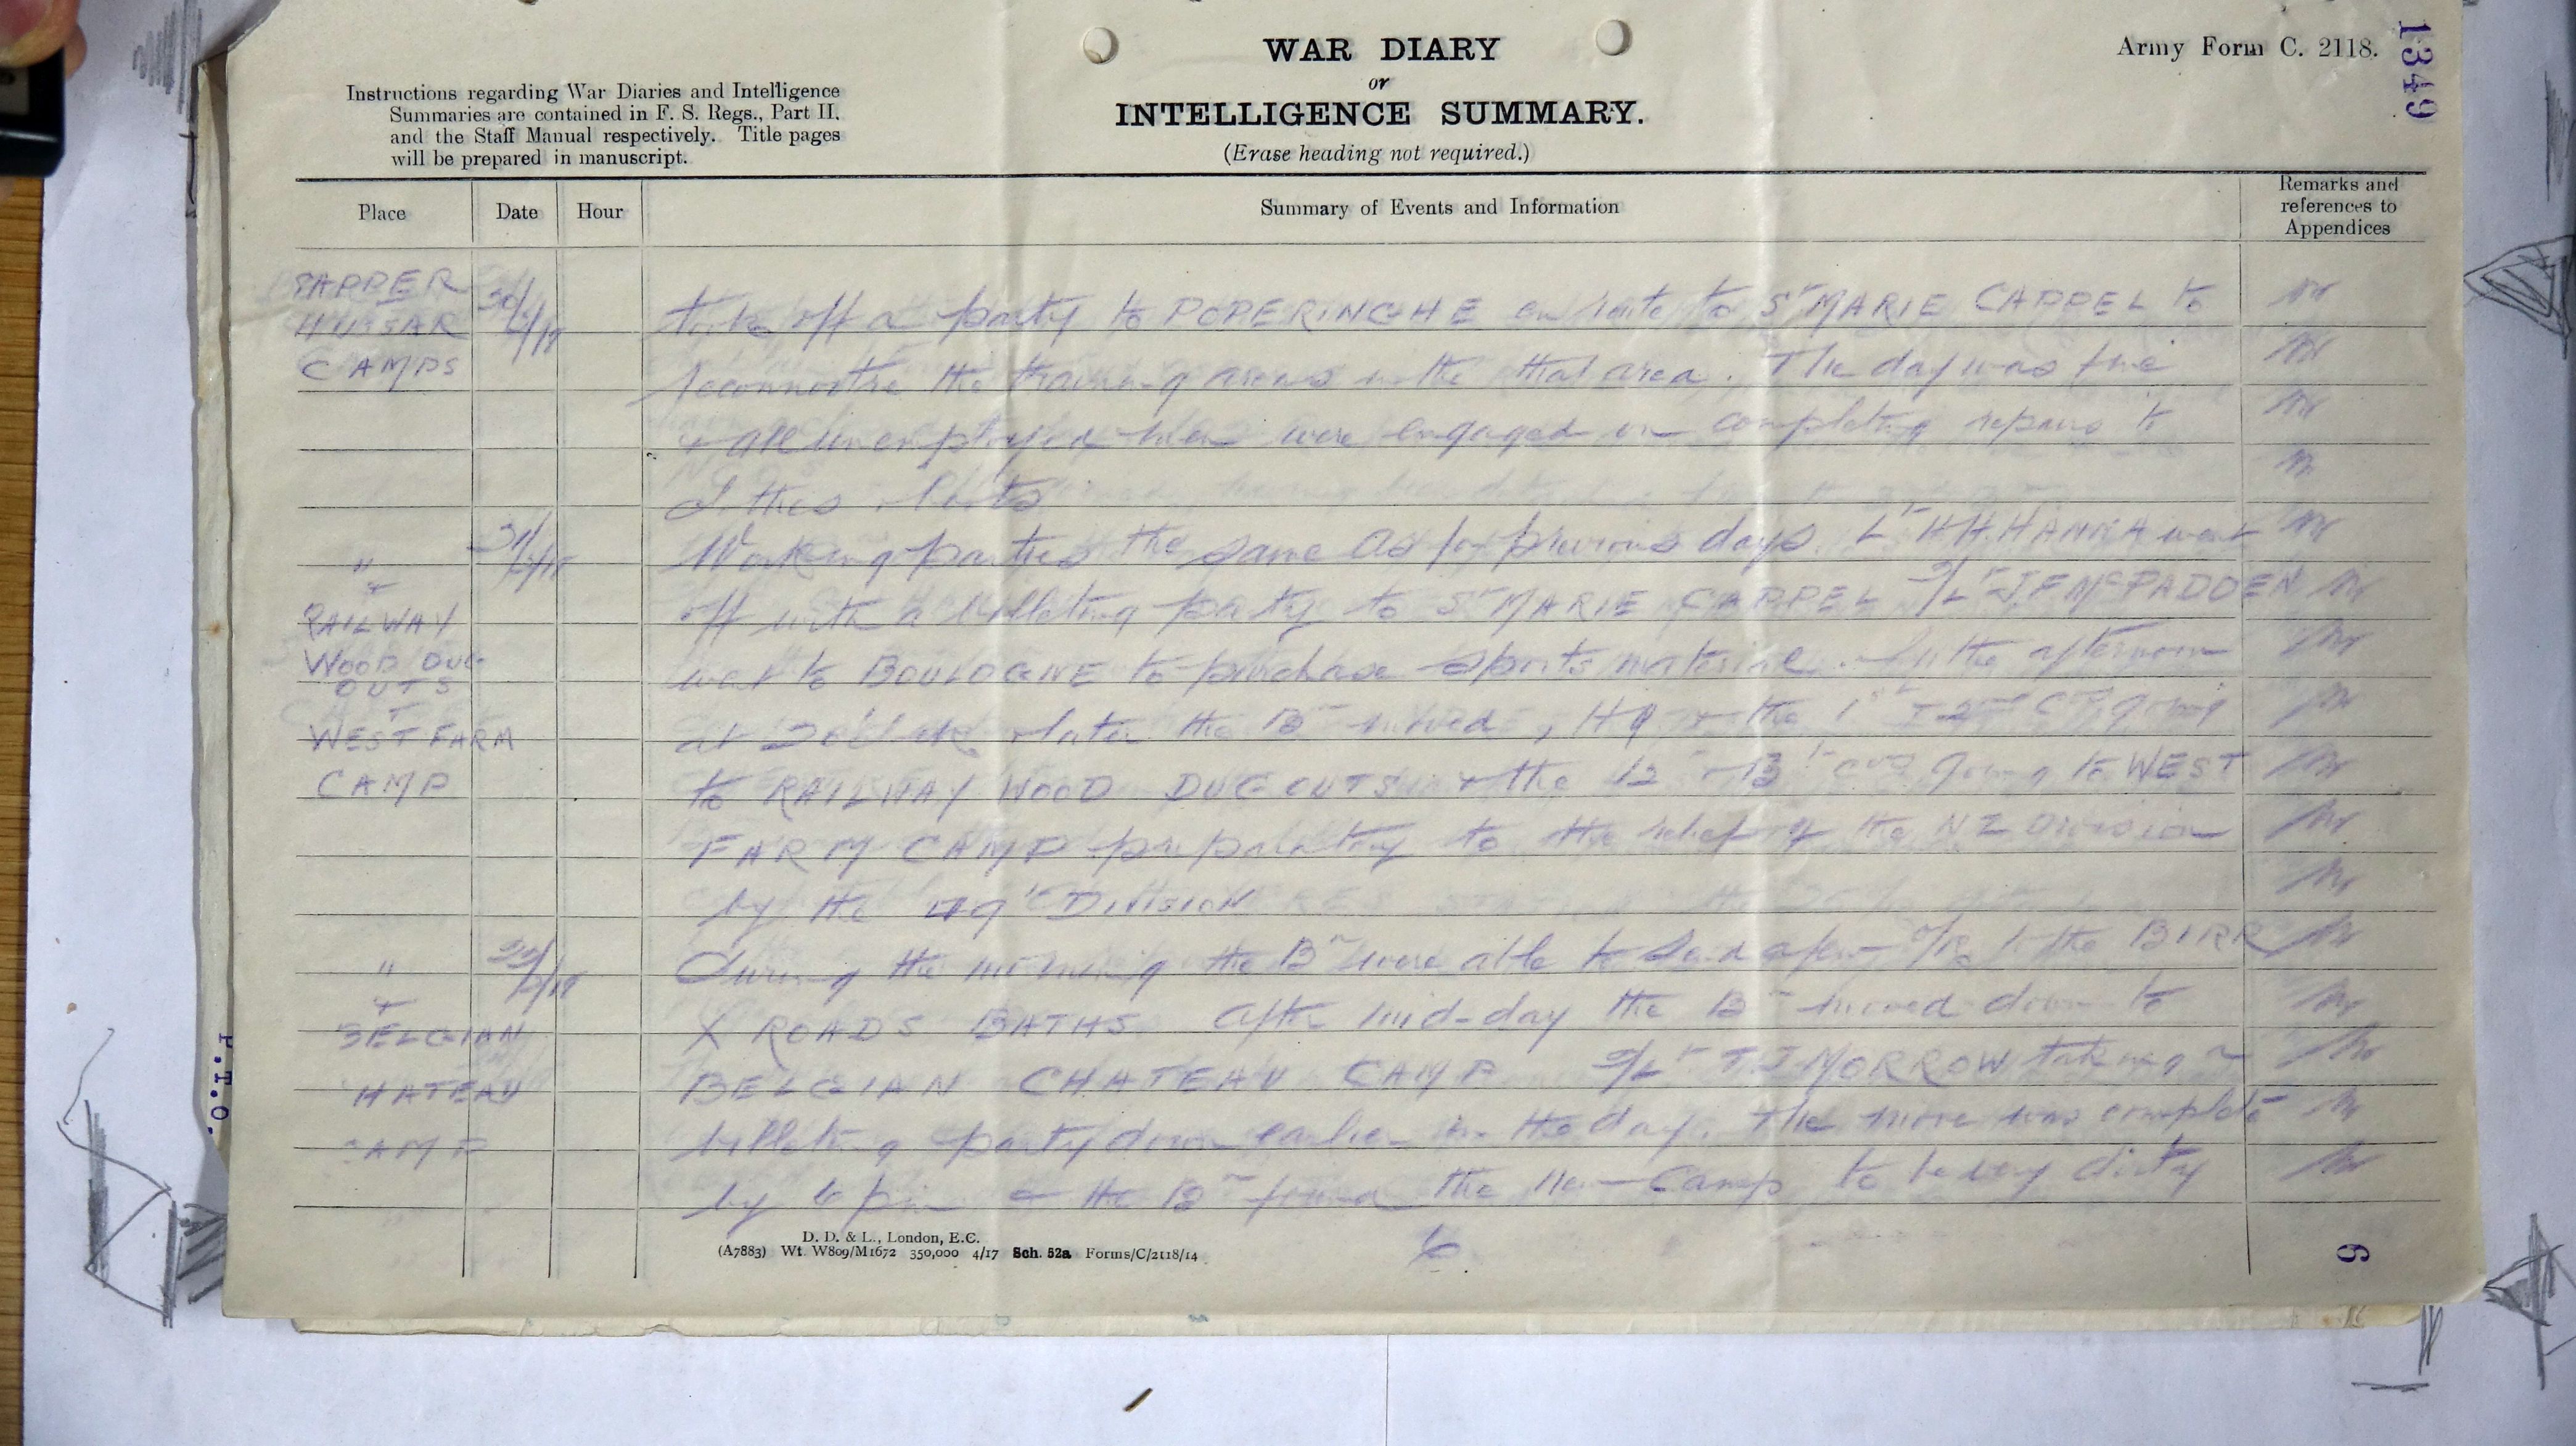 WAR DIARY
or
INTELLIGENCE SUMMARY.
(Erase heading not required.)
Army Form C. 2118.
1349
Instructions regarding War Diaries and Intelligence
Summaries are contained in F. S. Regs., Part II.
and the Staff Manual respectively. Title pages
will be prepared in manuscript.
Place Date Hour Summary of Events and Information Remarks and references to Appendices
SAPPER
HUSSAR
CAMPS
took off a party to POPERINGHE en route to St MARIE CAPPEL to
reconnoitre the training areas in the that area. The day was fine
& all unemployed men were engaged in completing repairs to
Working parties the same as for previous days. Lt H.H. HANNA went
off with a billeting party to St MARIE CAPPEL 2/Lt J.F McPADDEN
went to BOULOGNE to purchase sports material. In the afternoon
at later the Bn moved, HQ & the 1st & 2nd Coys going
to RAILWAY WOOD DUGOUTS & the 12 & 13 Coys going to WEST
FARM CAMP preparatory to the relief of the NZ Division
by the 49th DIVISION
" & RAILWAY
WOOD DUG
OUTS
&
WEST FARM
CAMP
During the morning the Bn were able to send a few O/R to the BIRR
X ROADS BATHS After mid-day the Bn moved down to
BELGIAN CHATEAU CAMP 2/Lt T J MORROW taking a
billeting party down earlier in the day. The move was complete
by 6 pm & the Bn found the new camp to be very dirty
" &
BELGIAN
HATEAU
AMP
D. D. & L., London, E.C.
(A7883) Wt. W809/M1672 350,000 4/17 Sch. 52a Forms/C/2118/14
6
6
P.T.O.